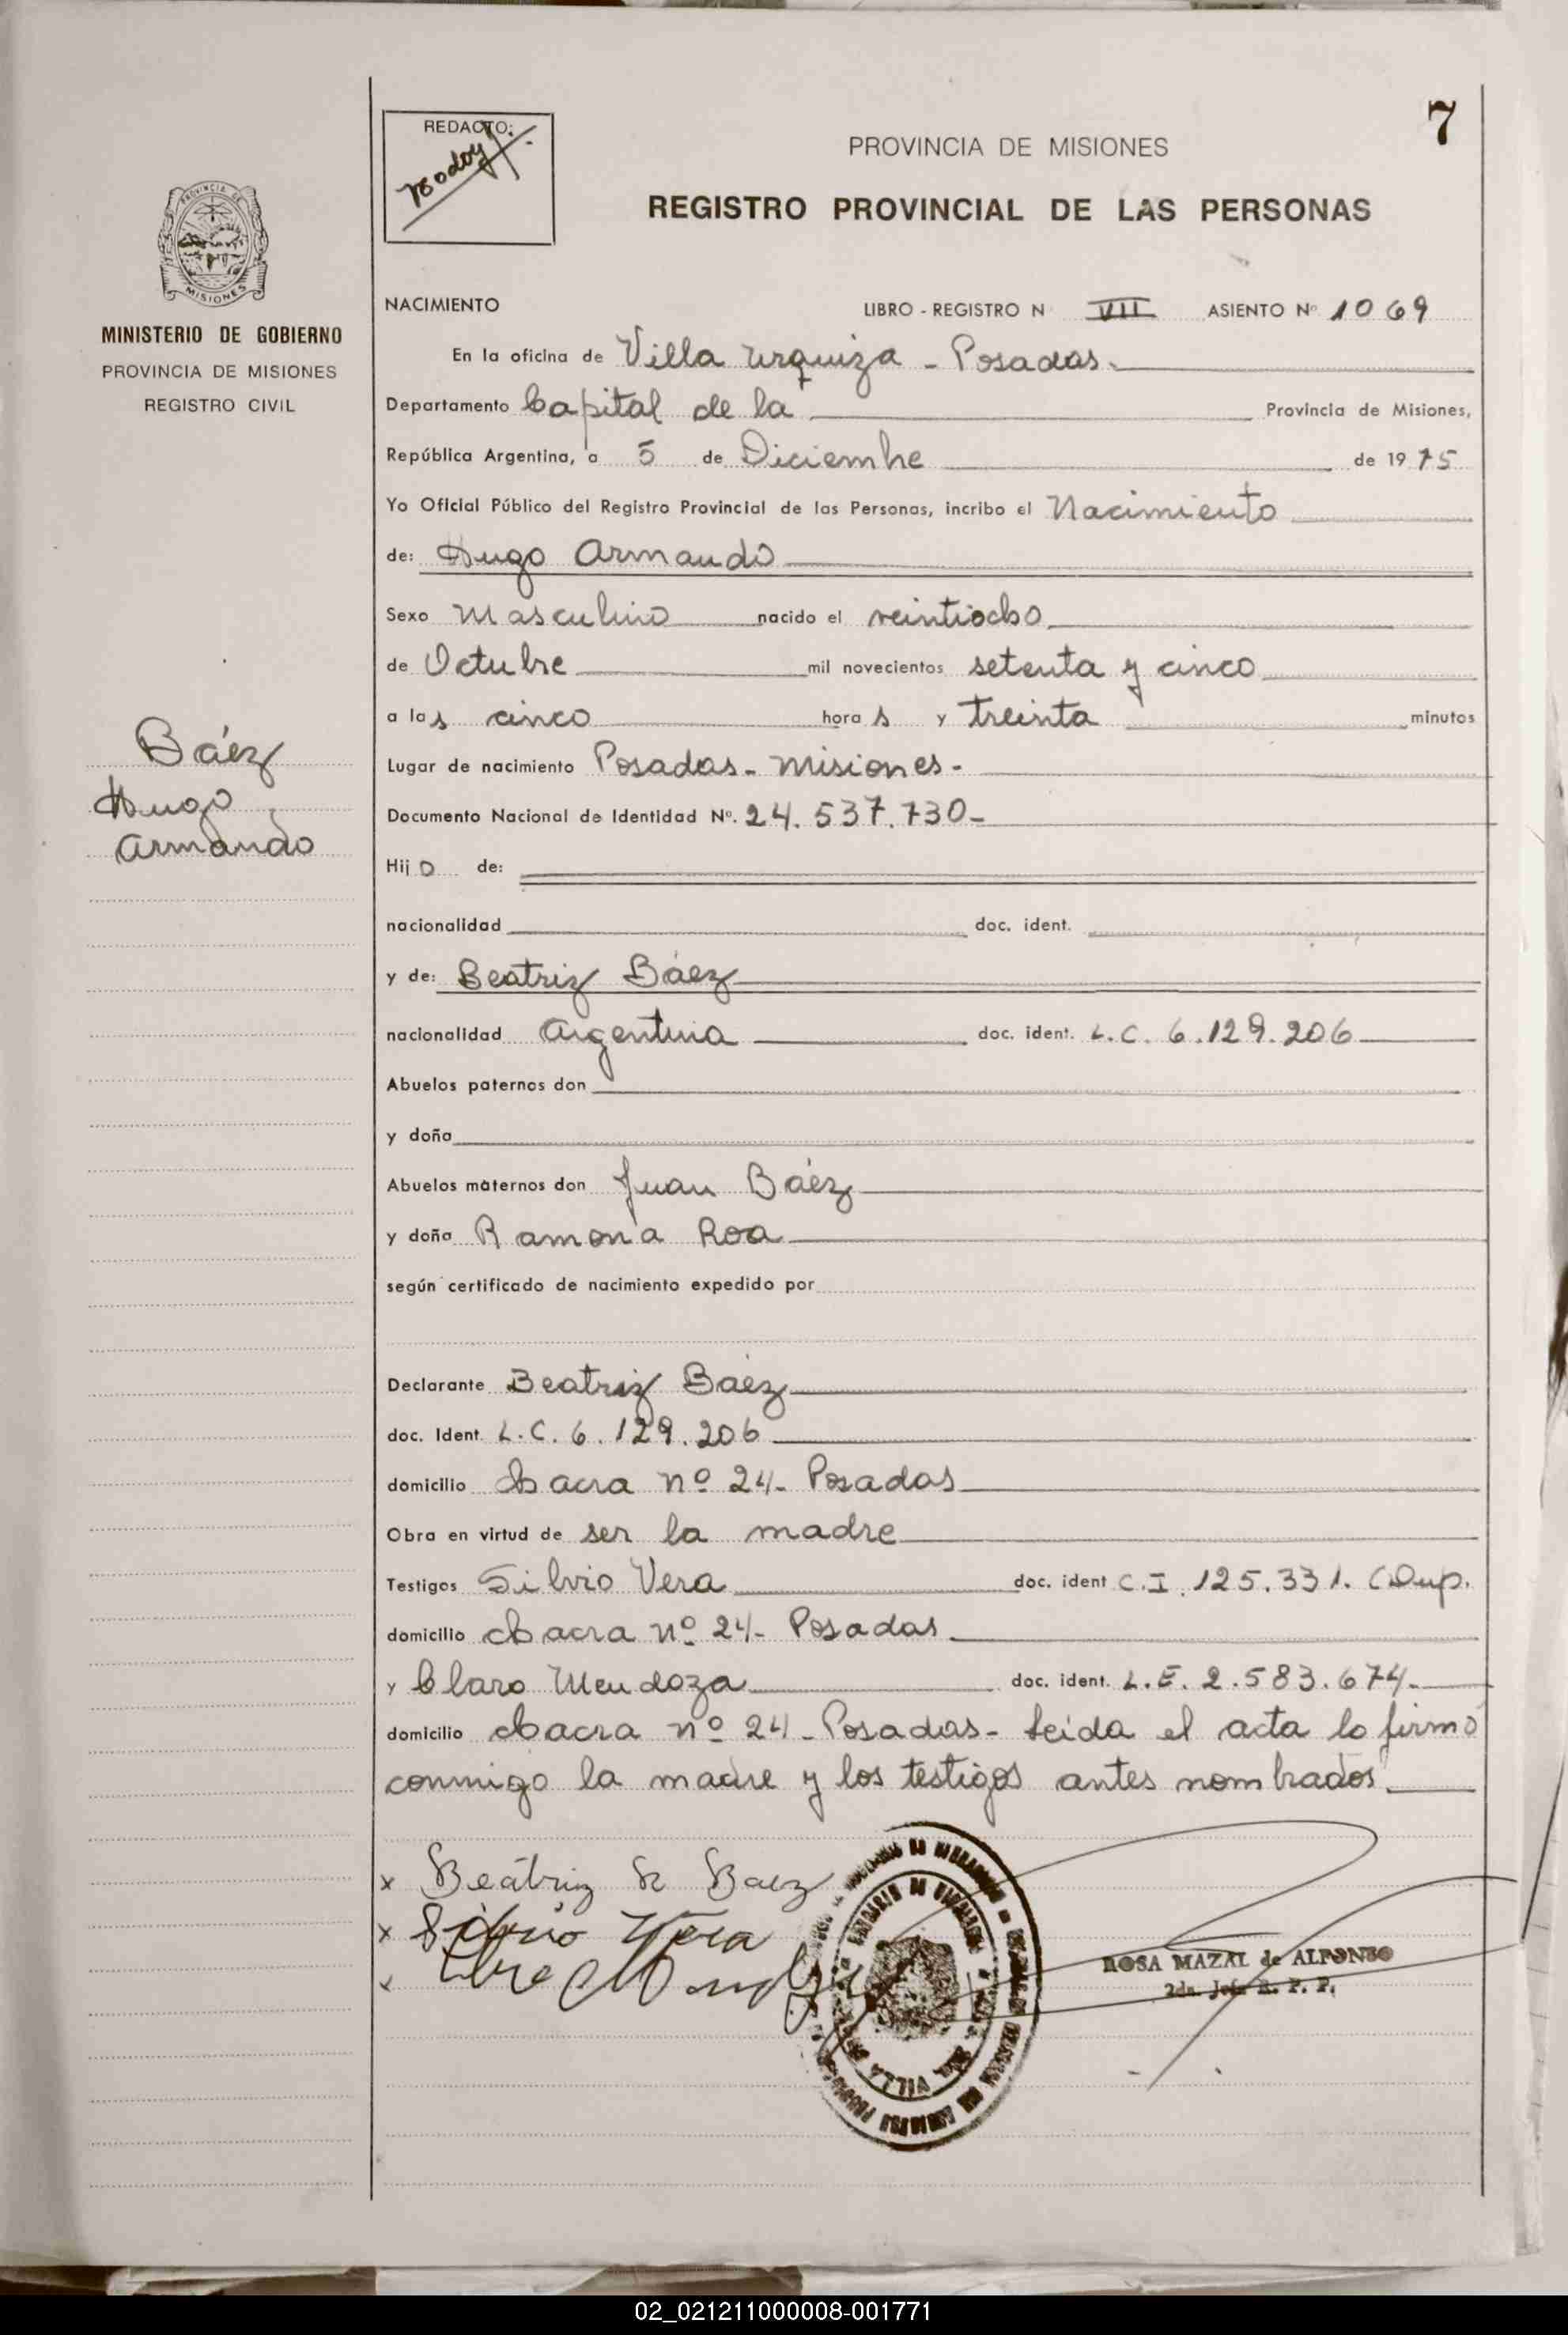 7
REDACTO:
PROVINCIA DE MISIONES
REGISTRO PROVINCIAL DE LAS PERSONAS
PROVINCIA DE
MISIONES
MINISTERIO DE GOBIERNO
PROVINCIA DE MISIONES
REGISTRO CIVIL
NACIMIENTO LIBRO - REGISTRO N VII ASIENTO Nº 1069
En la oficina de Villa Urquiza - Posadas.
Departamento Capital de la Provincia de Misiones,
República Argentina, a 5 de Diciembre de 1975
Yo Oficial Público del Registro Provincial de las Personas, incribo el Nacimiento
de: Hugo Armando
Sexo Masculino nacido el veintiocho
de Octubre mil novecientos setenta y cinco
a las cinco horas y treinta minutos
Báez
Hugo
Armando
Lugar de nacimiento Posadas - Misiones -
Documento Nacional de Identidad Nº. 24.537.730 -
Hijo de:
nacionalidad doc. ident.
y de: Beatriz Báez
nacionalidad Argentina doc. ident. L.C. 6.129.206
Abuelos paternos don
y doña
Abuelos maternos don Juan Báez
y doña Ramona Roa
según certificado de nacimiento expedido por
Declarante Beatriz Báez
doc. Ident. L.C. 6.129.206
domicilio chacra nº 24 - Posadas
Obra en virtud de ser la madre
Testigos Silvio Vera doc. ident C.I. 125.331. (Dup.
domicilio chacra nº 24 - Posadas
y Claro Mendoza doc. ident. L.E. 2.583.674.
domicilio chacra nº 24 - Posadas - Leída el acta lo firmó
conmigo la madre y los testigos antes nombrados.
x Beatriz R Baez
x Silvio Vera
x
ROSA MAZAL de ALFONSO
2da. Jefe R. P. P.
VILLA
02_021211000008-001771